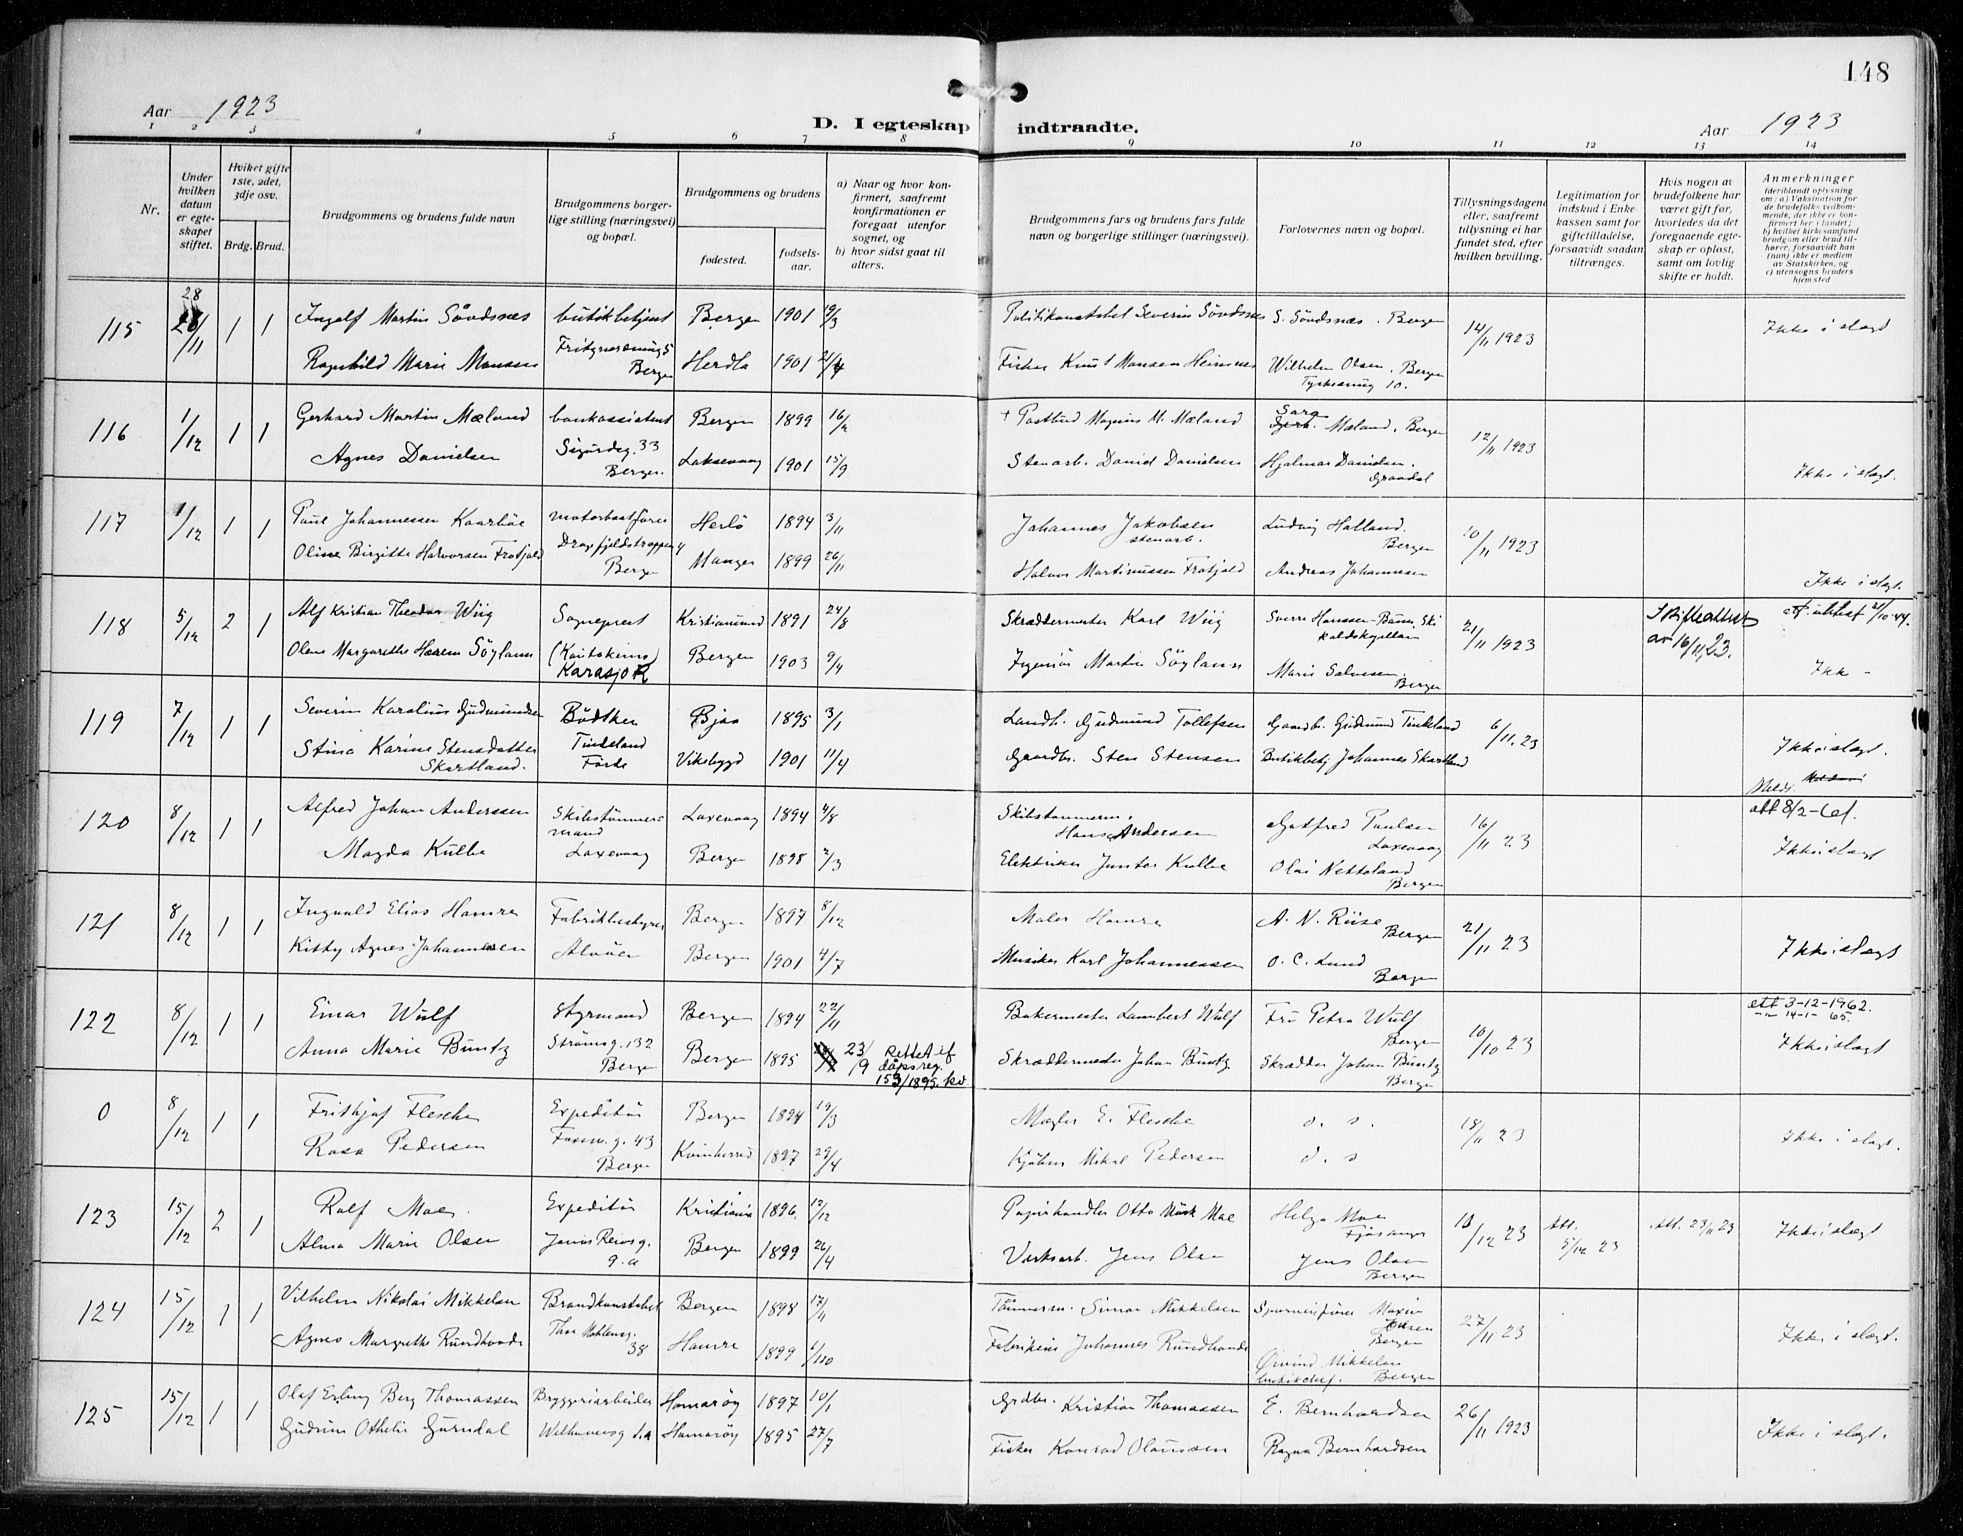 148
Aar 1923
D. I egteskap indtraadte.
Aar 1923
1 2 3 4 5 6 7 8 9 10 11 12 13 14
Nr.
Under hvilken datum er egteskapet stiftet.
Hviket gifte 1ste, 2det, 3dje osv.
Brdg. Brud.
Brudgommens og brudens fulde navn
Brudgommens borgerlige stilling (næringsvei) og bopæl.
Brudgommens og brudens
fødested.
fødselsaar.
a) Naar og hvor konfirmert, saafremt konfirmationen er foregaat utenfor sognet, og
b) hvor sidst gaat til alters.
Brudgommens fars og brudens fars fulde navn og borgerlige stillinger (næringsvei).
Forlovernes navn og bopæl.
Tillysningsdagene eller, saafremt tillysning ei har fundet sted, efter hvilken bevilling.
Legitimation for indskud i Enkekassen samt for giftetilladelse, forsaavidt saadan tiltrænges.
Hvis nogen av brudefolkene har været gift før, hvorledes da det foregaaende egteskap er opløst, samt om lovlig skifte er holdt.
Anmerkninger
(deriblandt oplysning om: a) Vaksination for de brudefolks vedkommende, der ikke er konfirmert her i landet; b) hvilket kirkesamfund brudgom eller brud tilhører, forsaavidt han (hun) ikke er medlem av Statskirken, og c) utensogns bruders hjemsted
115 28/11 1 1 Ingolf Martin Søvdsnes butikbetjent Bergen 1901 19/3 Politikonstabel Severin Søvdsnes S. Søvdsnes. Bergen 14/11 1923 Ikke i slegt
Ragnhild Marie Monsen Bergen Herdla 1901 Fisker Knut Monsen Heimnes Wilhelm Olsen. Bergen
116 1/12 1 1 Gerhard Martin Mæland bankassistent Bergen 1899 16/2 + Postbud Magnus M. Mæland Sara Mæland. Bergen 12/11 1923
Agnes Danielsen Sigurdsg. 33 Bergen. Laksevaag 1901 15/9 Stenarb. David Danielsen Hjalmar Danielsen. Ikke i slegt.
117 1/12 1 1 Paul Johannessen Kaarbøe motorbaatfører Herlø 1894 3/11 Johannes Jakobsen stenarb. Ludvig Halland. Bergen 10/11 1923
Oline Birgitte Halvorsen Frotjold Bergen Manger 1899 26/11 Halvor Martinussen Frotjold Andreas Johannesen Ikke i slegt.
118 5/12 2 1 Alf Kristian Theodor Wiig Sogneprest Kristiansund 1891 24/8 Skræddermester Karl Wiig 21/11 1923 Skifteattest av 16/11 23.
(Kautokeino) Karasjok Bergen 1903 9/4 Ingeniør Martin Søyland Marie Salvesen. Bergen Ikke -
119 7/12 1 1 Severin Karolius Gudmundsen Bødtker Bjoa 1895 3/1 Landb. Gudmund Tollefsen Gaardb. Gudmund Tinkeland 6/11. 23
Stina Karine Stensdatter Skartland. Tinkeland Førde Vikebygd 1901 11/4 Gaardbr. Sten Stensen Butikbetj Johannes Skartland Ikke i slegt.
120 8/12 1 1 Alfred Johan Anderssen Skibstømmermand Laxevaag 1894 4/8 Skibstømmerm. Hans Andersen Gotfred Paulsen Laxevaag 16/11 23 att 8/2-61.
Magda Kulbe Laxevaag Bergen 1898 2/3 Elektriker Kulbe Bergen Ikke i slegt
121 8/12 1 1 Ingvald Elias Hamre Fabrikbestyrer Bergen 1897 8/12 Maler Hamre A. N. Riise Bergen 21/11 23
Kitty Agnes Johannessen Alvøen Bergen 1901 4/7 Musiker Karl Johannessen O. C. Lund Bergen Ikke i slegt
122 8/12 1 1 Einar Wulf Styrmand Bergen 1894 22/11 Bakermester Lambert Wulf Fru Petra Wulf Bergen 10/10 23 att 3-12-1962. -"- 14-1- 65.
Anna Marie Buntz Strømsg. 132 Bergen Bergen 1895 23/9 Rettet if dåpsreg. 153/1895. Skræddermester Johan Buntz Skrædder Johan Buntz Bergen Ikke i slegt
0 8/12 1 1 Frithjof Flesche Expeditør Bergen 1894 19/3 Mægler E. Flesche d. s. 18/11 23
Rosa Pedersen 43 Bergen Kvinherred 1897 29/4 Kjøbm Mikal Pedersen d. s Ikke i slegt.
123 15/12 2 1 Rolf Moe. Expeditør Kristiania 1896. 12/12 Papirhandler Otto Mørk Moe Helga Moe Fjøsanger 10/12 23 Att. 5/12 23 Att. 23/11 23 Ikke i slegt
Alma Marie Olsen Jonas Reinsg. 9.a Bergen 1899 26/4 Verksarb. Jens Olsen Jens Olsen Bergen
124 15/12 1 1 Vilhelm Nikolai Mikkelsen Brandkonstabel Bergen 1898 17/11 Tømmerm. Simon Mikkelsen Bergen 27/11 23
Agnes Margrethe Rundhovde 38 Hamre 1899 Johannes Rundhovde Øivind Mikkelsen Bergen Ikke i slegt.
125 15/12 1 1 Olaf Erling Berg Thomassen Bryggeriarbeider Hamarøy 1897 10/1 Grdbr. Kristian Thomassen E. Bernhardsen 26/11 1923
Gudrun Othelie Hamarøy 1895 27/7 Fisker Konrad Olaussen Ragna Bernhardsen Ikke i slegt.